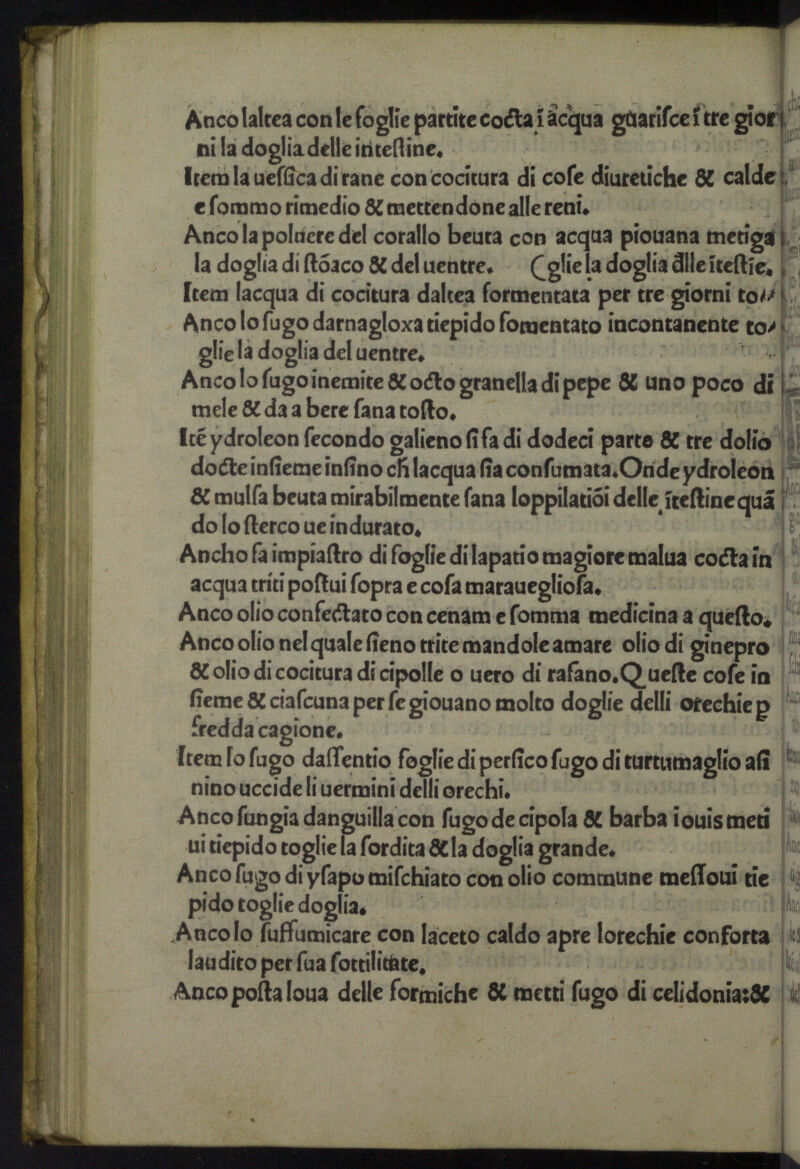 Anco laltea con le foglie partite cocta ī acqua guarisce ī tre gior
ni la doglia delle intestine.
Item la uessica di rane con cocitura di cose diuretiche & calde
e sommo rimedio & mettendone alle reni.
Anco la poluere del corallo beuta con acqua piouana metiga
la doglia di stōaco & del uentre. (glie la doglia dlle īteſtie.
Item lacqua di cocitura daltea formentata per tre giorni to//
Anco lo sugo darnagloxa tiepido fomentato incontanente to/
glie la doglia del uentre.
Anco lo sugo inemite & octo granella di pepe & uno poco di
mele & da a bere sana tosto.
Itē ydroleon secondo galieno si fa di dodeci parte & tre dolio
docte insieme insino ch lacqua sia consumata. Onde ydroleon
& mulsa beuta mirabilmente sana loppilatiōi delle īteſtine quā
do lo sterco ue indurato.
Ancho fa impiastro di foglie di lapatio magiore malua cocta in
acqua triti postui sopra e cosa marauegliosa.
Anco olio confectato con cenam e somma medicina a questo.
Anco olio nel quale sieno trite mandole amare olio di ginepro
& olio di cocitura di cipolle o uero di rafano. Queste cose in
sieme & ciascuna per se giouano molto doglie delli orechie p
fredda cagione.
Item lo sugo dassentio foglie di persico sugo di turtumaglio asi
nino uccide li uermini delli orechi.
Anco sungia danguilla con sugo de cipola & barba iouis meti
ui tiepido toglie la sordita & la doglia grande.
Anco sugo di ysapo mischiato con olio commune messoui tie
pido toglie doglia.
Anco lo suffumicare con laceto caldo apre lorechie conforta
laudito per sua sottilitate.
Anco posta loua delle formiche & metti sugo di celidonia:&